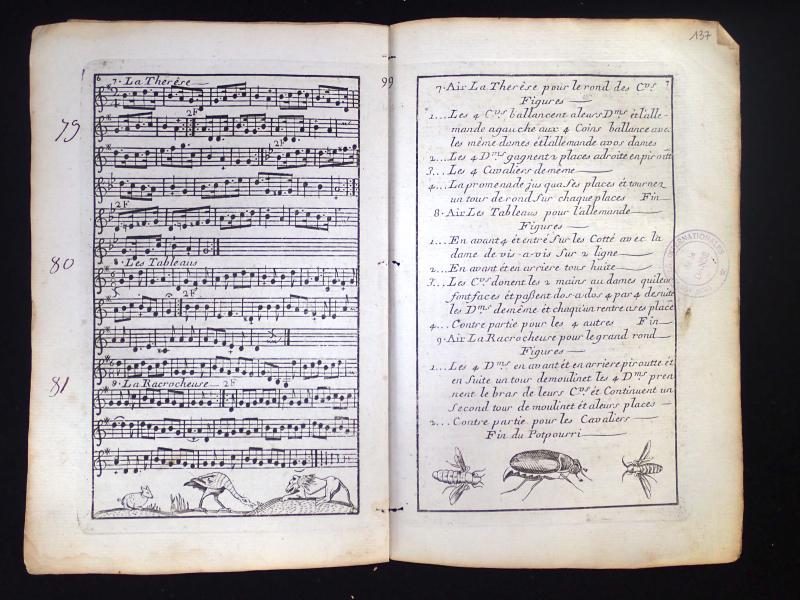 6
7. La Therèse
79
2F
2F
2F
80
8. Les Tableaus
2F
81
9. La Racrocheuse
2F
99
137
7
7. Air La Therèse pour le rond des C.vs.
Figures
1... Les 4 C.vs. ballancent aleurs D.ms et l'alle-
mande agauche aux 4 Coins ballance avec
les même dames et l'allemande avos dames
2... Les 4 D.ms gagnent 2 places adroite en piroutte
3... Les 4 Cavaliers de meme
4... La promenade jus qua ses places et tournez
un tour de rond sur chaque places Fin
8. Air Les Tableaus pour l'allemande
Figures
1... En avant 4 et entré sur les Cotté avec la
dame de vis-a-vis sur 2 ligne
2... En avant et en arriere tous huite
3... Les C.vs donent les 2 mains au dames qui leur
font faces et paßent dos-a-dos 4 par 4 de suitte
les D.ms de même et chaqu'un rentre a ses place
4... Contre partie pour les 4 autres Fin
9. Air La Racrocheuse pour le grand rond
Figures
1... Les 4 D.ms en avant et en arriere piroutte et
en suite un tour demoulinet les 4 D.ms pren
nent le bras de leurs C.vs et Continuent un
Second tour de moulinet et aleurs places
2... Contre partie pour les Cavaliers
Fin du Potpourri